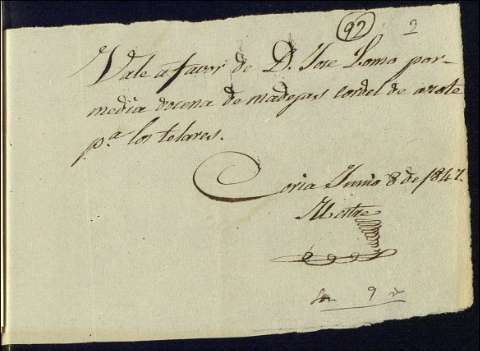 92 2
Vale a favor de D. Jose Lomo por
media docena de madejas cordel de azote
pª los telares.
Coria Junio 8 de 1847.
Son 9